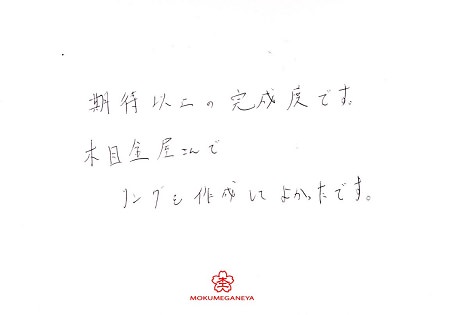 期待以上の完成度です。
木目金屋さんで
リングを作成してよかったです。
MOKUMEGANEYA